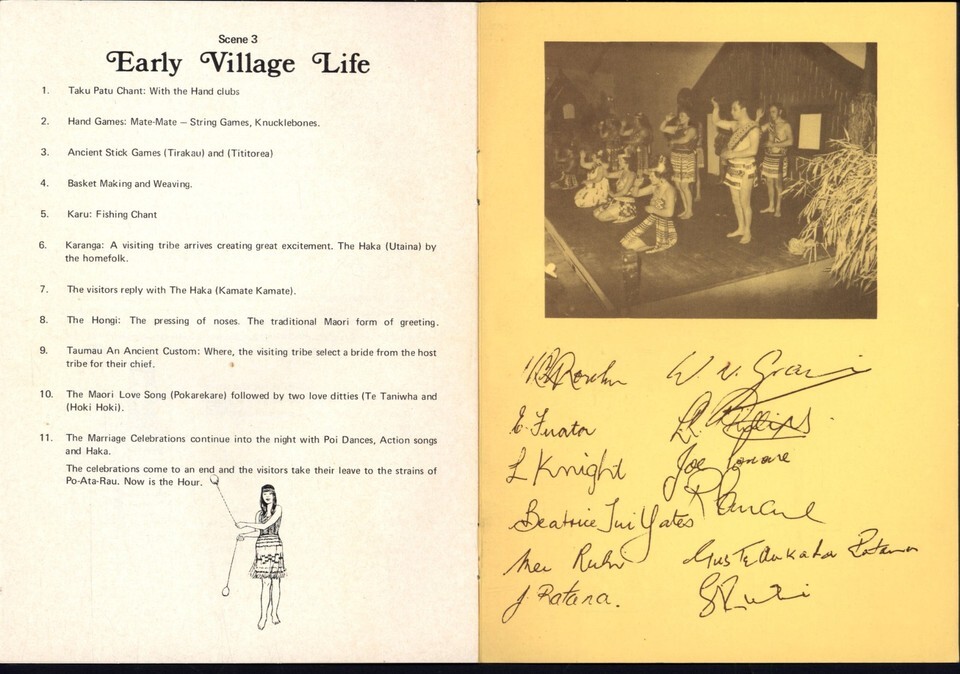 Scene 3
Early Village Life
1. Taku Patu Chant: With the Hand clubs
2. Hand Games: Mate-Mate — String Games, Knucklebones.
3. Ancient Stick Games (Tirakau) and (Tititorea)
4. Basket Making and Weaving.
5. Karu: Fishing Chant
6. Karanga: A visiting tribe arrives creating great excitement. The Haka (Utaina) by
the homefolk.
7. The visitors reply with The Haka (Kamate Kamate).
8. The Hongi: The pressing of noses. The traditional Maori form of greeting.
9. Taumau An Ancient Custom: Where, the visiting tribe select a bride from the host
tribe for their chief.
10. The Maori Love Song (Pokarekare) followed by two love ditties (Te Taniwha and
(Hoki Hoki).
11. The Marriage Celebrations continue into the night with Poi Dances, Action songs
and Haka.
The celebrations come to an end and the visitors take their leave to the strains of
Po-Ata-Rau. Now is the Hour.
W. N.
Phillips
L Knight
Joe
Beatrice Tui Yates
Gus Ratana
J. Ratana.